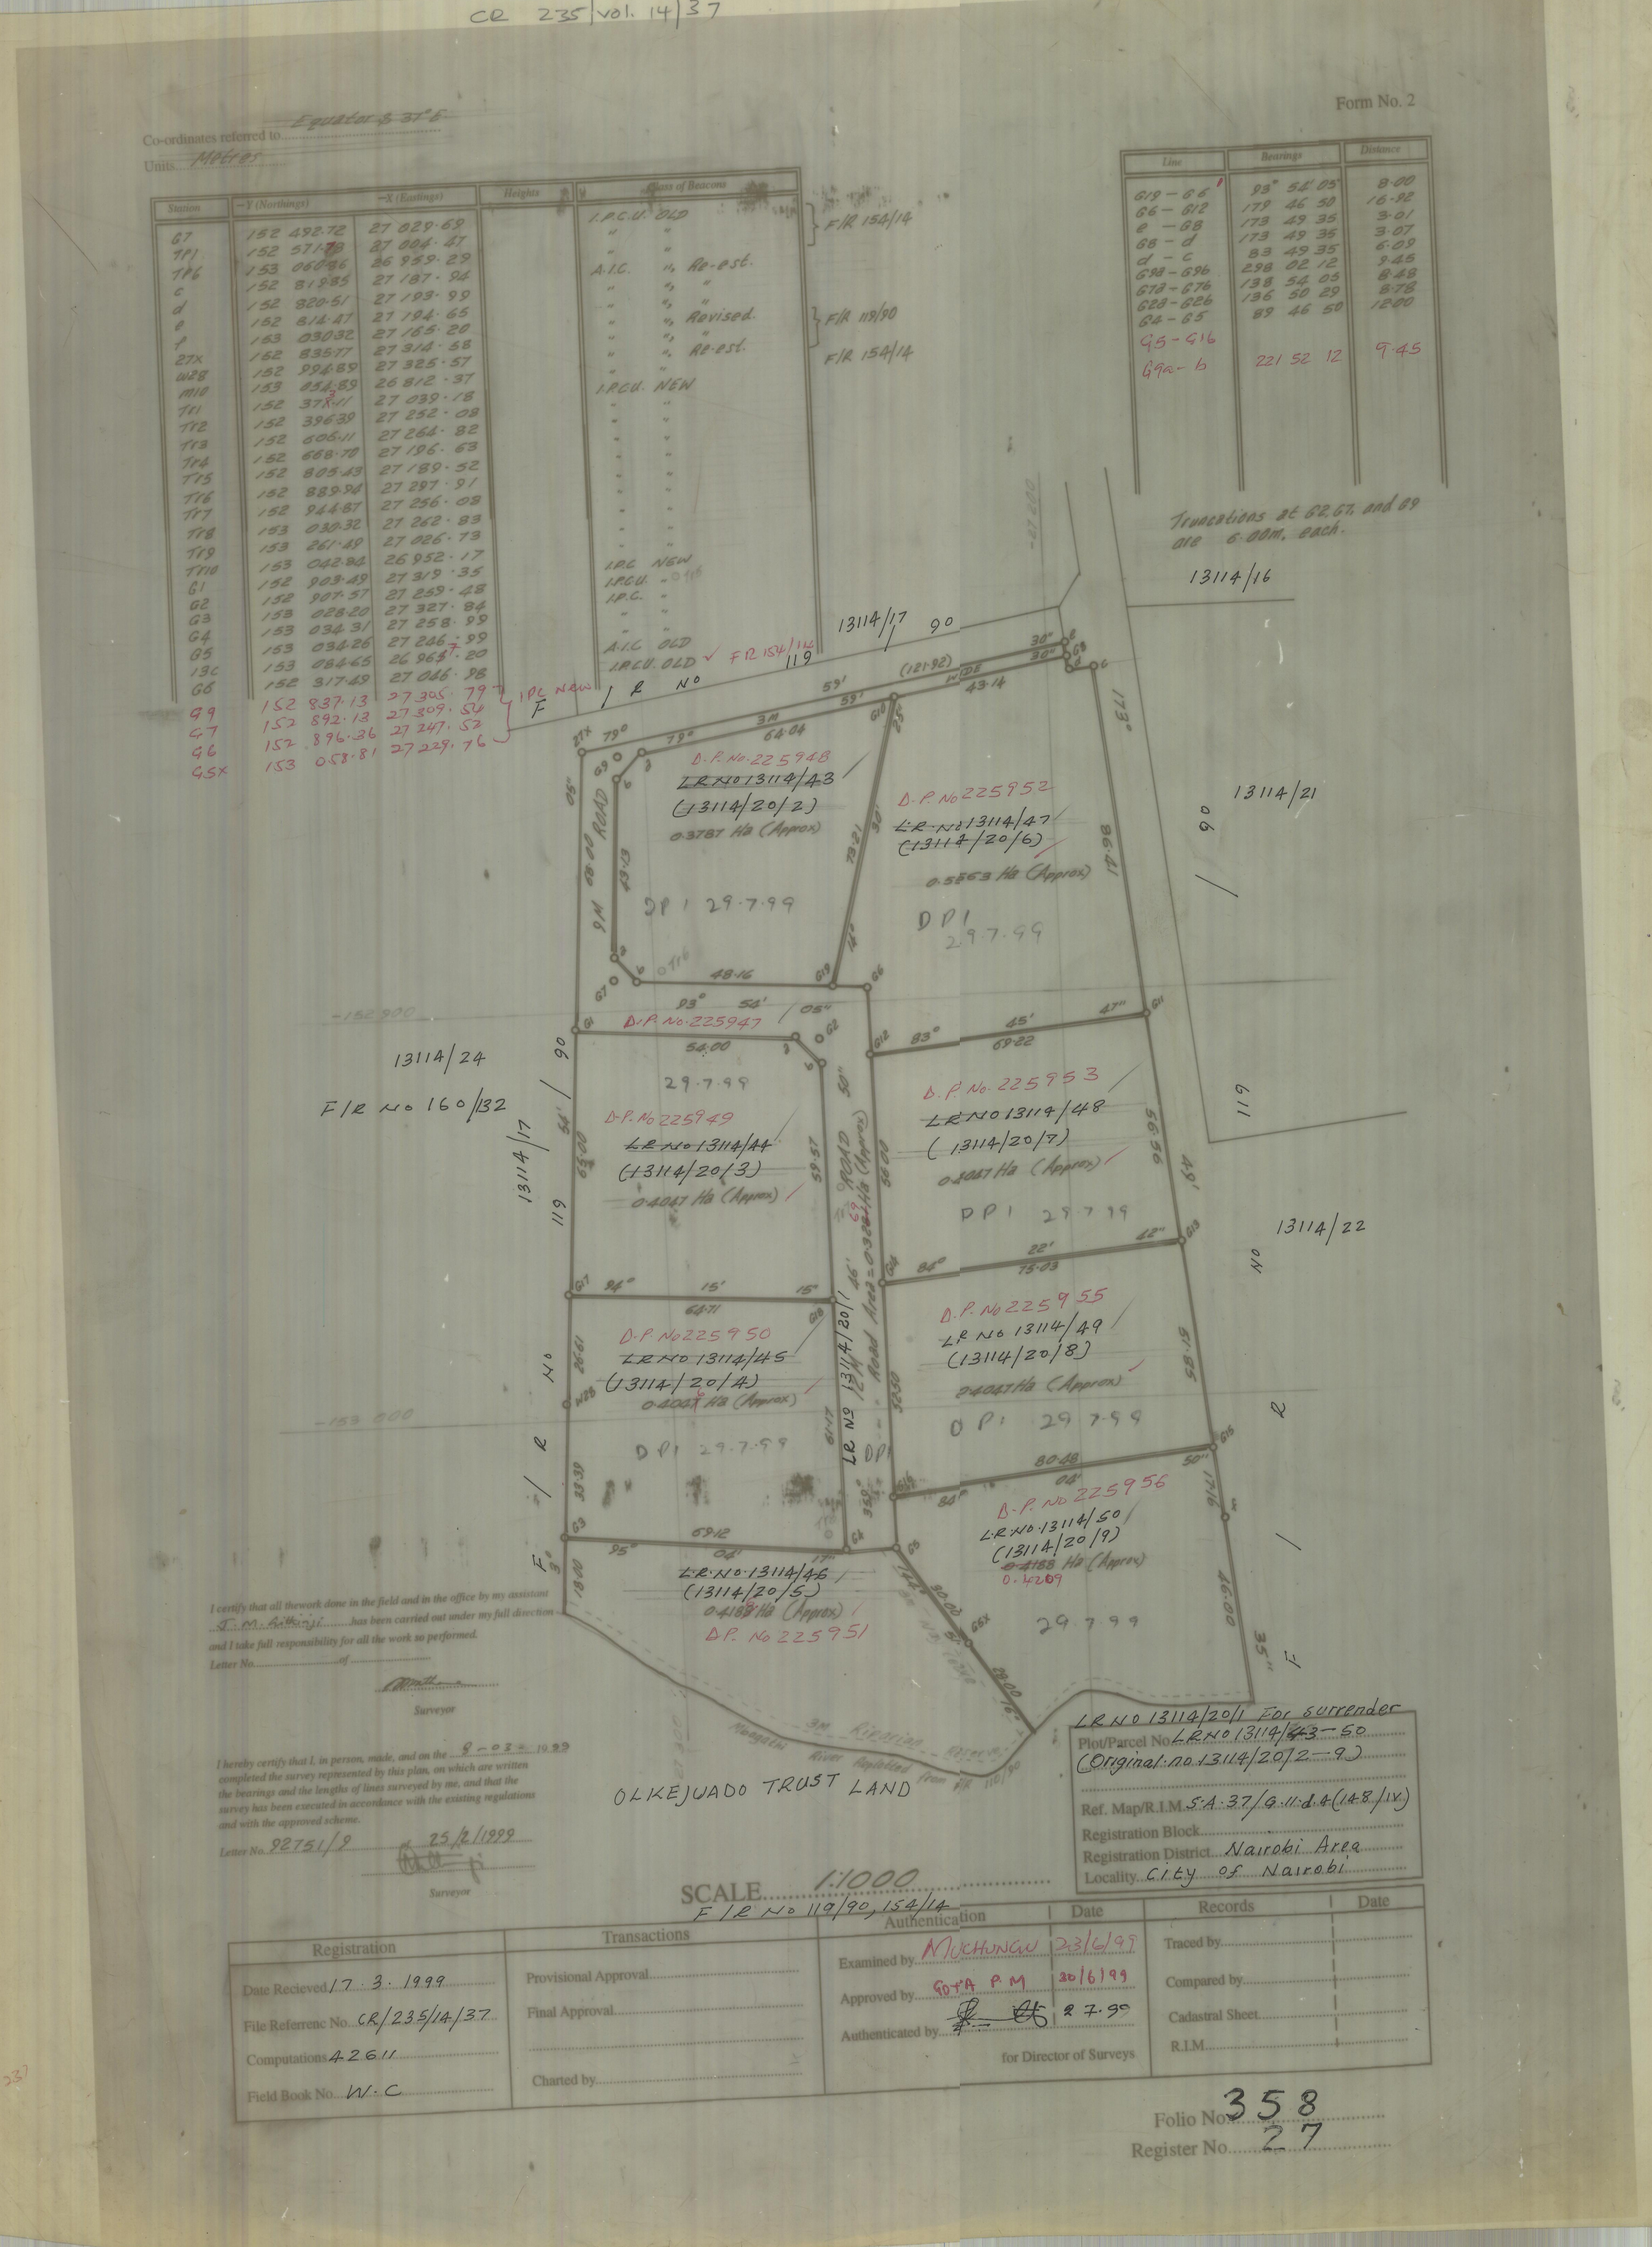 CR 235/vol. 14/37
Form No. 2
Co-ordinates referred to Equator & 37°E
Units Metres
Station
-Y (Northings)
-X (Eastings)
Heights
Class of Beacons
G7 152 492.72 27 029.69 I.P.C.U. OLD
F/R 154/14
TP1
27 004.47
TP6
26 959.29
A.I.C. " Re-est.
c
27 187.94
d 152 820.51 27 193.99
e 152 814.47 27 194.65 " Revised.
F/R 119/90
f 153 030.32 27 165.20
27X 152 835.77 27 314.58 " Re-est.
F/R 154/14
W28 152 994.89 27 325.57
M10
26 812.37
I.P.C.U. NEW
Tr1
27 039.18
Tr2 152 396.39 27 252.08
Tr3 152 606.11 27 264.82
Tr4 152 668.70 27 196.63
Tr5 152 805.43 27 189.52
Tr6 152 889.94 27 297.91
Tr7 152 944.87 27 256.08
Tr8 153 030.32 27 262.83
Tr9 153 261.49 27 026.73
Tr10 153 042.84 26 952.17 I.P.C NEW
G1 152 903.49 27 319.35 I.P.C.U. "
G2 152 907.57 27 259.48 I.P.C. "
G3 153 028.20 27 327.84
G4 153 034.31 27 258.99
G5 153 034.26 27 246.99 A.I.C OLD
13C 153 084.65
I.P.C.U. OLD
G6 152 317.49 27 046.98
G9 152 837.13 27 305.79 I.P.C NEW
G7 152 892.13 27 309.54
G6 152 896.36 27 247.52
G5X 153 058.81 27 229.76
Line
Bearings
Distance
G19 - G6 93° 54' 05" 8.00
G6 - G12 179 46 50 16.92
e - G8 173 49 35 3.01
G8 - d 173 49 35 3.07
d - c 83 49 35 6.09
G9a - G9b 298 02 12 9.45
G7a - G7b 138 54 05 8.48
G2a - G2b 136 50 29 8.78
G4 - G5 89 46 50 12.00
G5 - G16
G9a - b 221 52 12 9.45
Truncations at G2, G7, and G9
are 6.00m, each.
13114/16
13114/17
90
119
F / R NO
-27 200
59'
(121.92)
30"
79°
3M
WIDE
79°
64.04
59'
43.14
30"
173°
D.P. No. 225948
LR NO 13114/43
(13114/20/2)
0.3787 Ha (Approx)
DP1 29.7.99
D.P. No 225952
LR NO 13114/47
(13114/20/6)
Ha (Approx)
DP1
29.7.99
13114/21
90
/
9M ROAD
68.00
05"
43.13
73.21
30'
86.41
48.16
93° 54' 05"
-152 900
D.P. No. 225947
54.00
83° 45' 47"
69.22
13114/24
F/R NO 160/132
13114/17
90
119
29.7.99
D.P. No 225949
LR NO 13114/44
(13114/20/3)
0.4047 Ha (Approx)
65.00
59.57
56.00
D.P. No. 225953
LR NO 13114/48
(13114/20/7)
0.4047 Ha (Approx)
DP1 29.7.99
56.56
49'
119
13114/22
94° 15' 15"
64.71
84° 22' 42"
75.03
D.P. No 225950
LR NO 13114/45
(13114/20/4)
Ha (Approx)
DP1 29.7.99
26.61
33.39
61.17
52.50
LR NO 13114/20/1
12M ROAD
-153 000
D.P. No 225955
LR NO 13114/49
(13114/20/8)
0.4047 Ha (Approx)
DP1 29.7.99
51.85
80.48
84° 04' 50"
69.12
95° 04' 17"
LR. NO. 13114/46
(13114/20/5)
Ha (Approx)
D.P. No 225951
18.00
D.P. NO 225956
LR. NO. 13114/50
(13114/20/9)
0.4188 Ha (Approx)
0.4209
29.7.99
17.16
46.00
35"
F / R NO
3M Riparian Reserve
River Replotted from F/R 119/90
OLKEJUADO TRUST LAND
I certify that all thework done in the field and in the office by my assistant
has been carried out under my full direction
and I take full responsibility for all the work so performed.
Letter No. of
Surveyor
I hereby certify that I, in person, made, and on the 8-03- 1999
completed the survey represented by this plan, on which are written
the bearings and the lengths of lines surveyed by me, and that the
survey has been executed in accordance with the existing regulations
and with the approved scheme.
Letter No. 92751/9 of 25/2/1999
Surveyor
LR NO 13114/20/1 For surrender
Plot/Parcel No LR NO 13114/43-50
(Original no 13114/20/2-9)
Ref. Map/R.I.M S.A.37/G.11.d.4(148/IV)
Registration Block
Registration District Nairobi Area
Locality City of Nairobi
SCALE 1:1000
F/R NO 119/90, 154/14
Registration
Date Recieved 17.3.1999
File Referrenc No. CR/235/14/37
Computations 42611
Field Book No. W.C
Transactions
Provisional Approval
Final Approval
Charted by
Authentication
Date
Examined by MUCHUNGU 23/6/99
Approved by GOTA P.M 30/6/99
Authenticated by 2.7.99
for Director of Surveys
Records
Date
Traced by
Compared by
Cadastral Sheet
R.I.M
Folio No. 358
Register No. 27